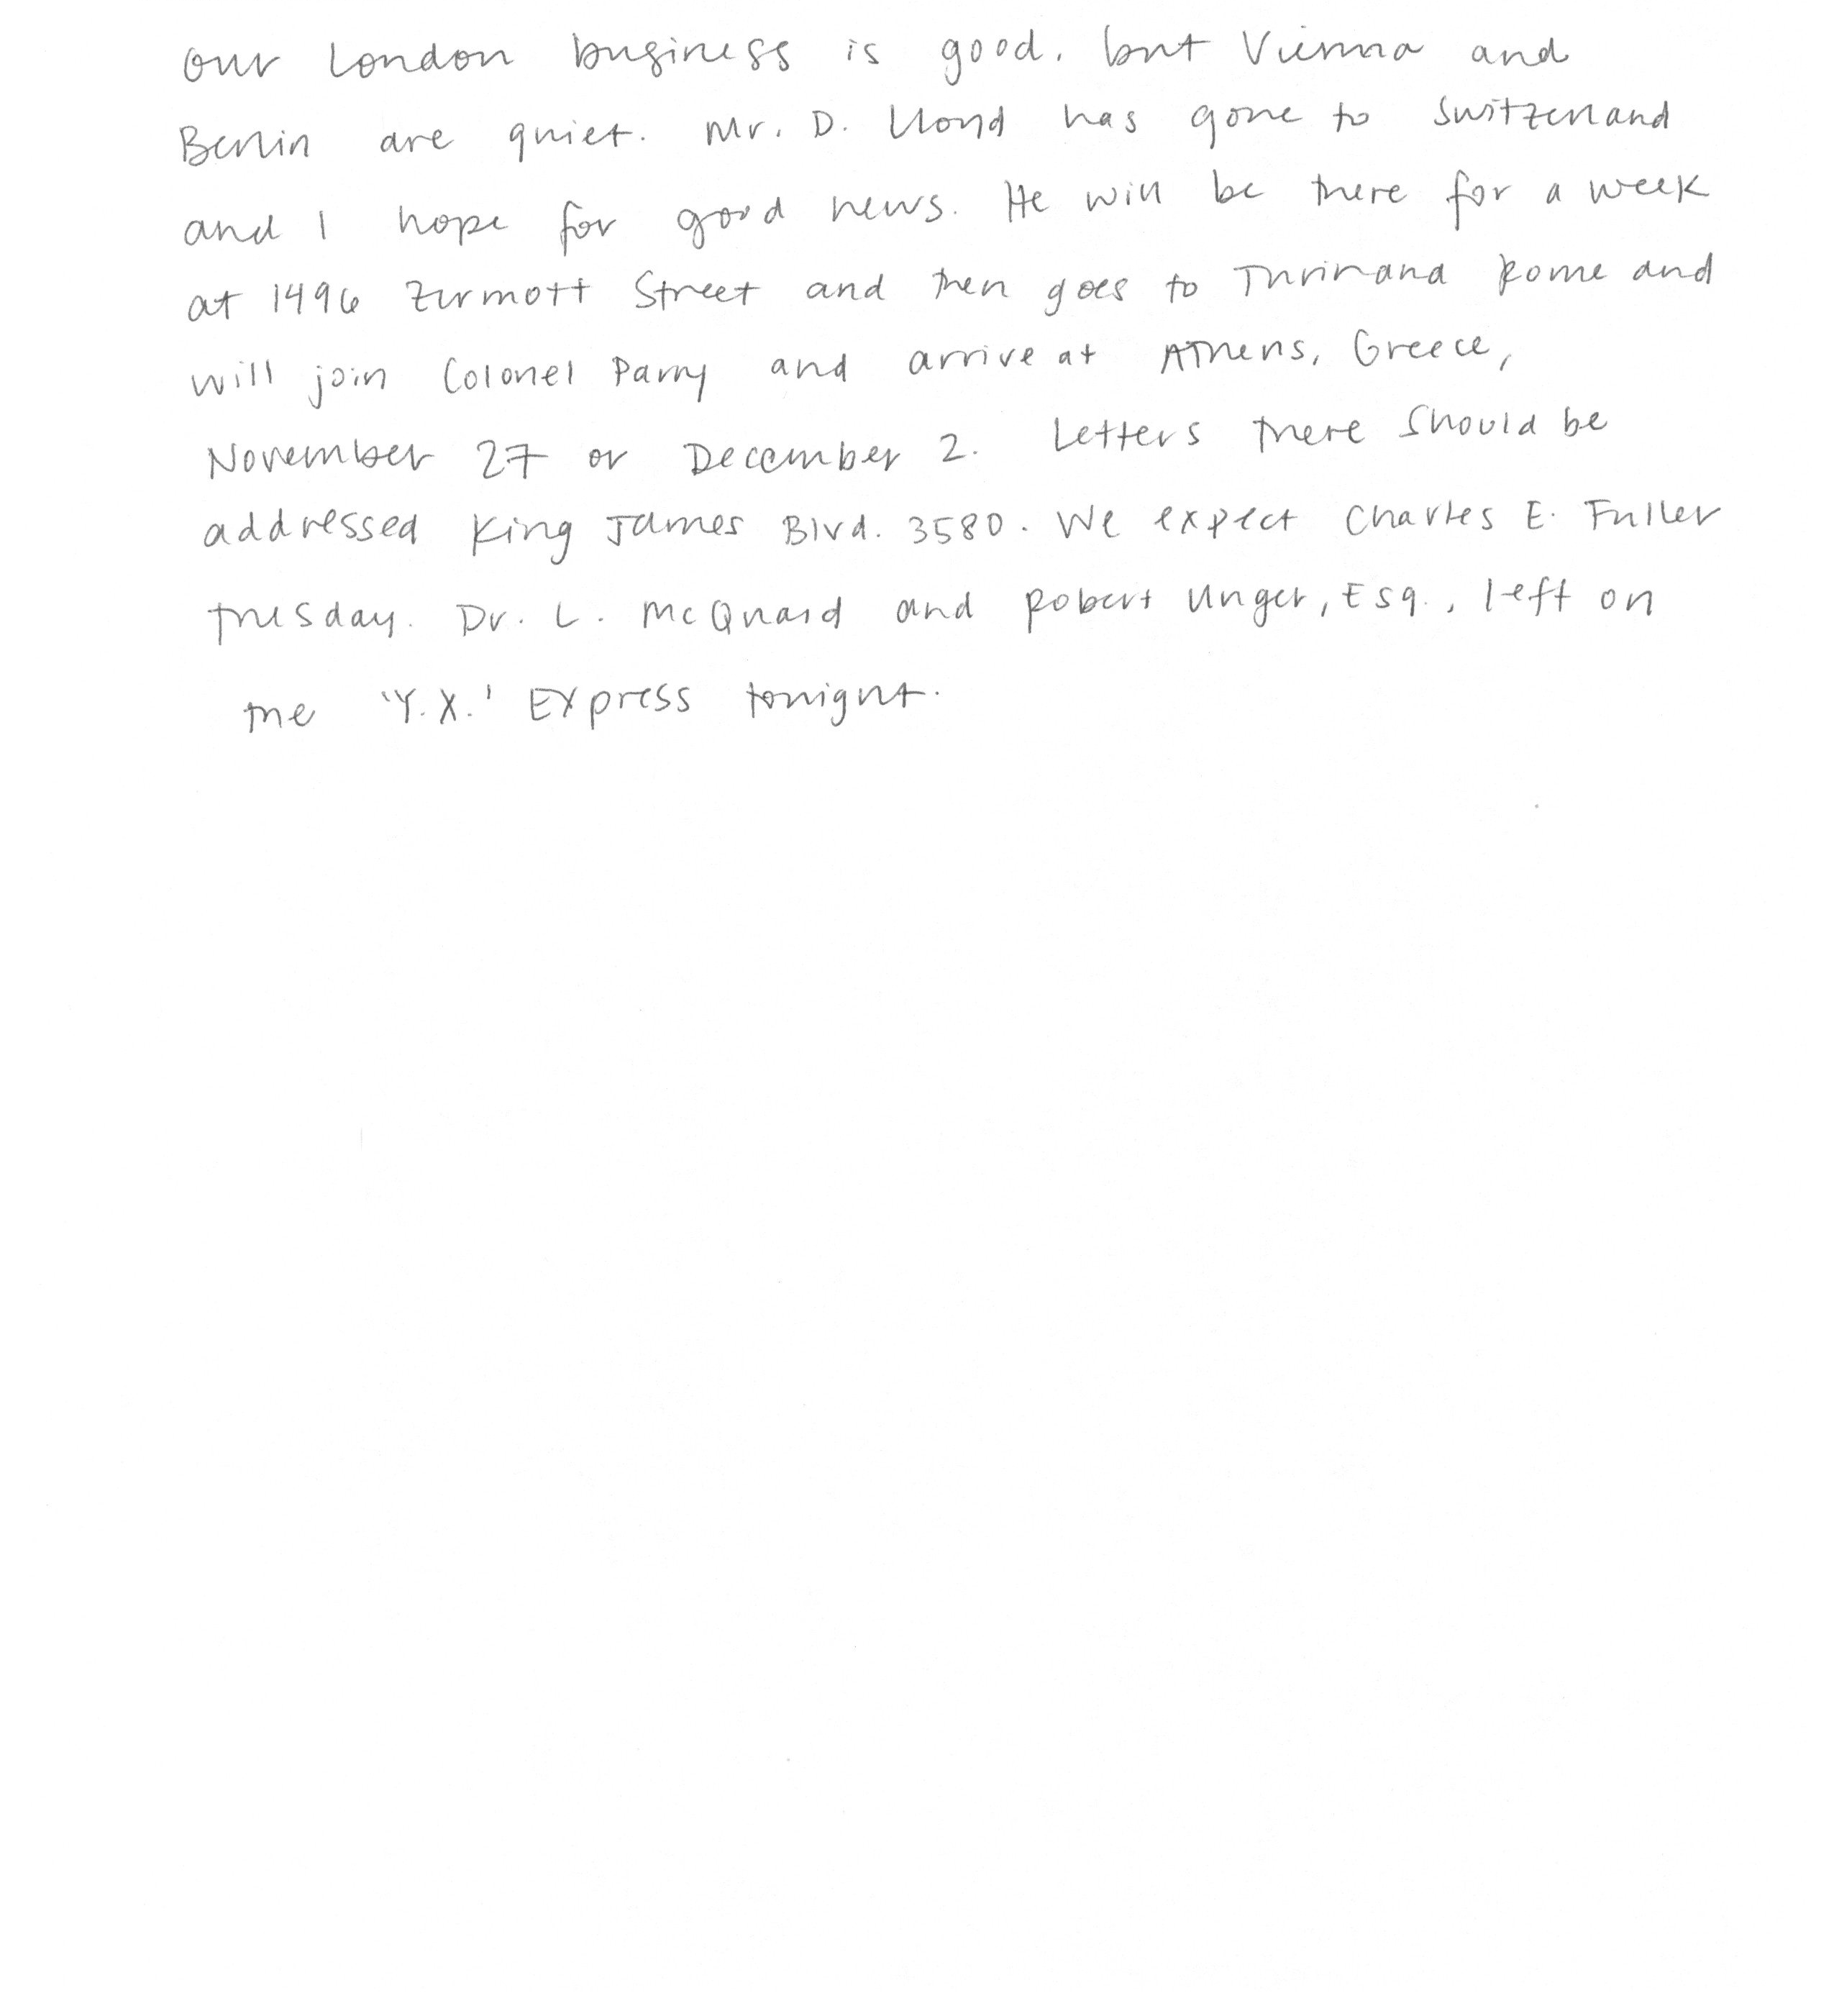 Our London business is good, but Vienna and
Berlin are quiet. Mr. D. Lloyd has gone to Switzerland
and I hope for good news. He will be there for a week
at 1496 Zurmott Street and then goes to Thrin and Rome and
will join Colonel Parry and arrive at Athens, Greece,
November 27 or December 2. Letters there should be
addressed King James Blvd. 3580. We expect Charles E. Fuller
Tuesday. Dr. L. McQuaid and Robert Unger, Esq., left on
the 'Y.X.' Express tonight.